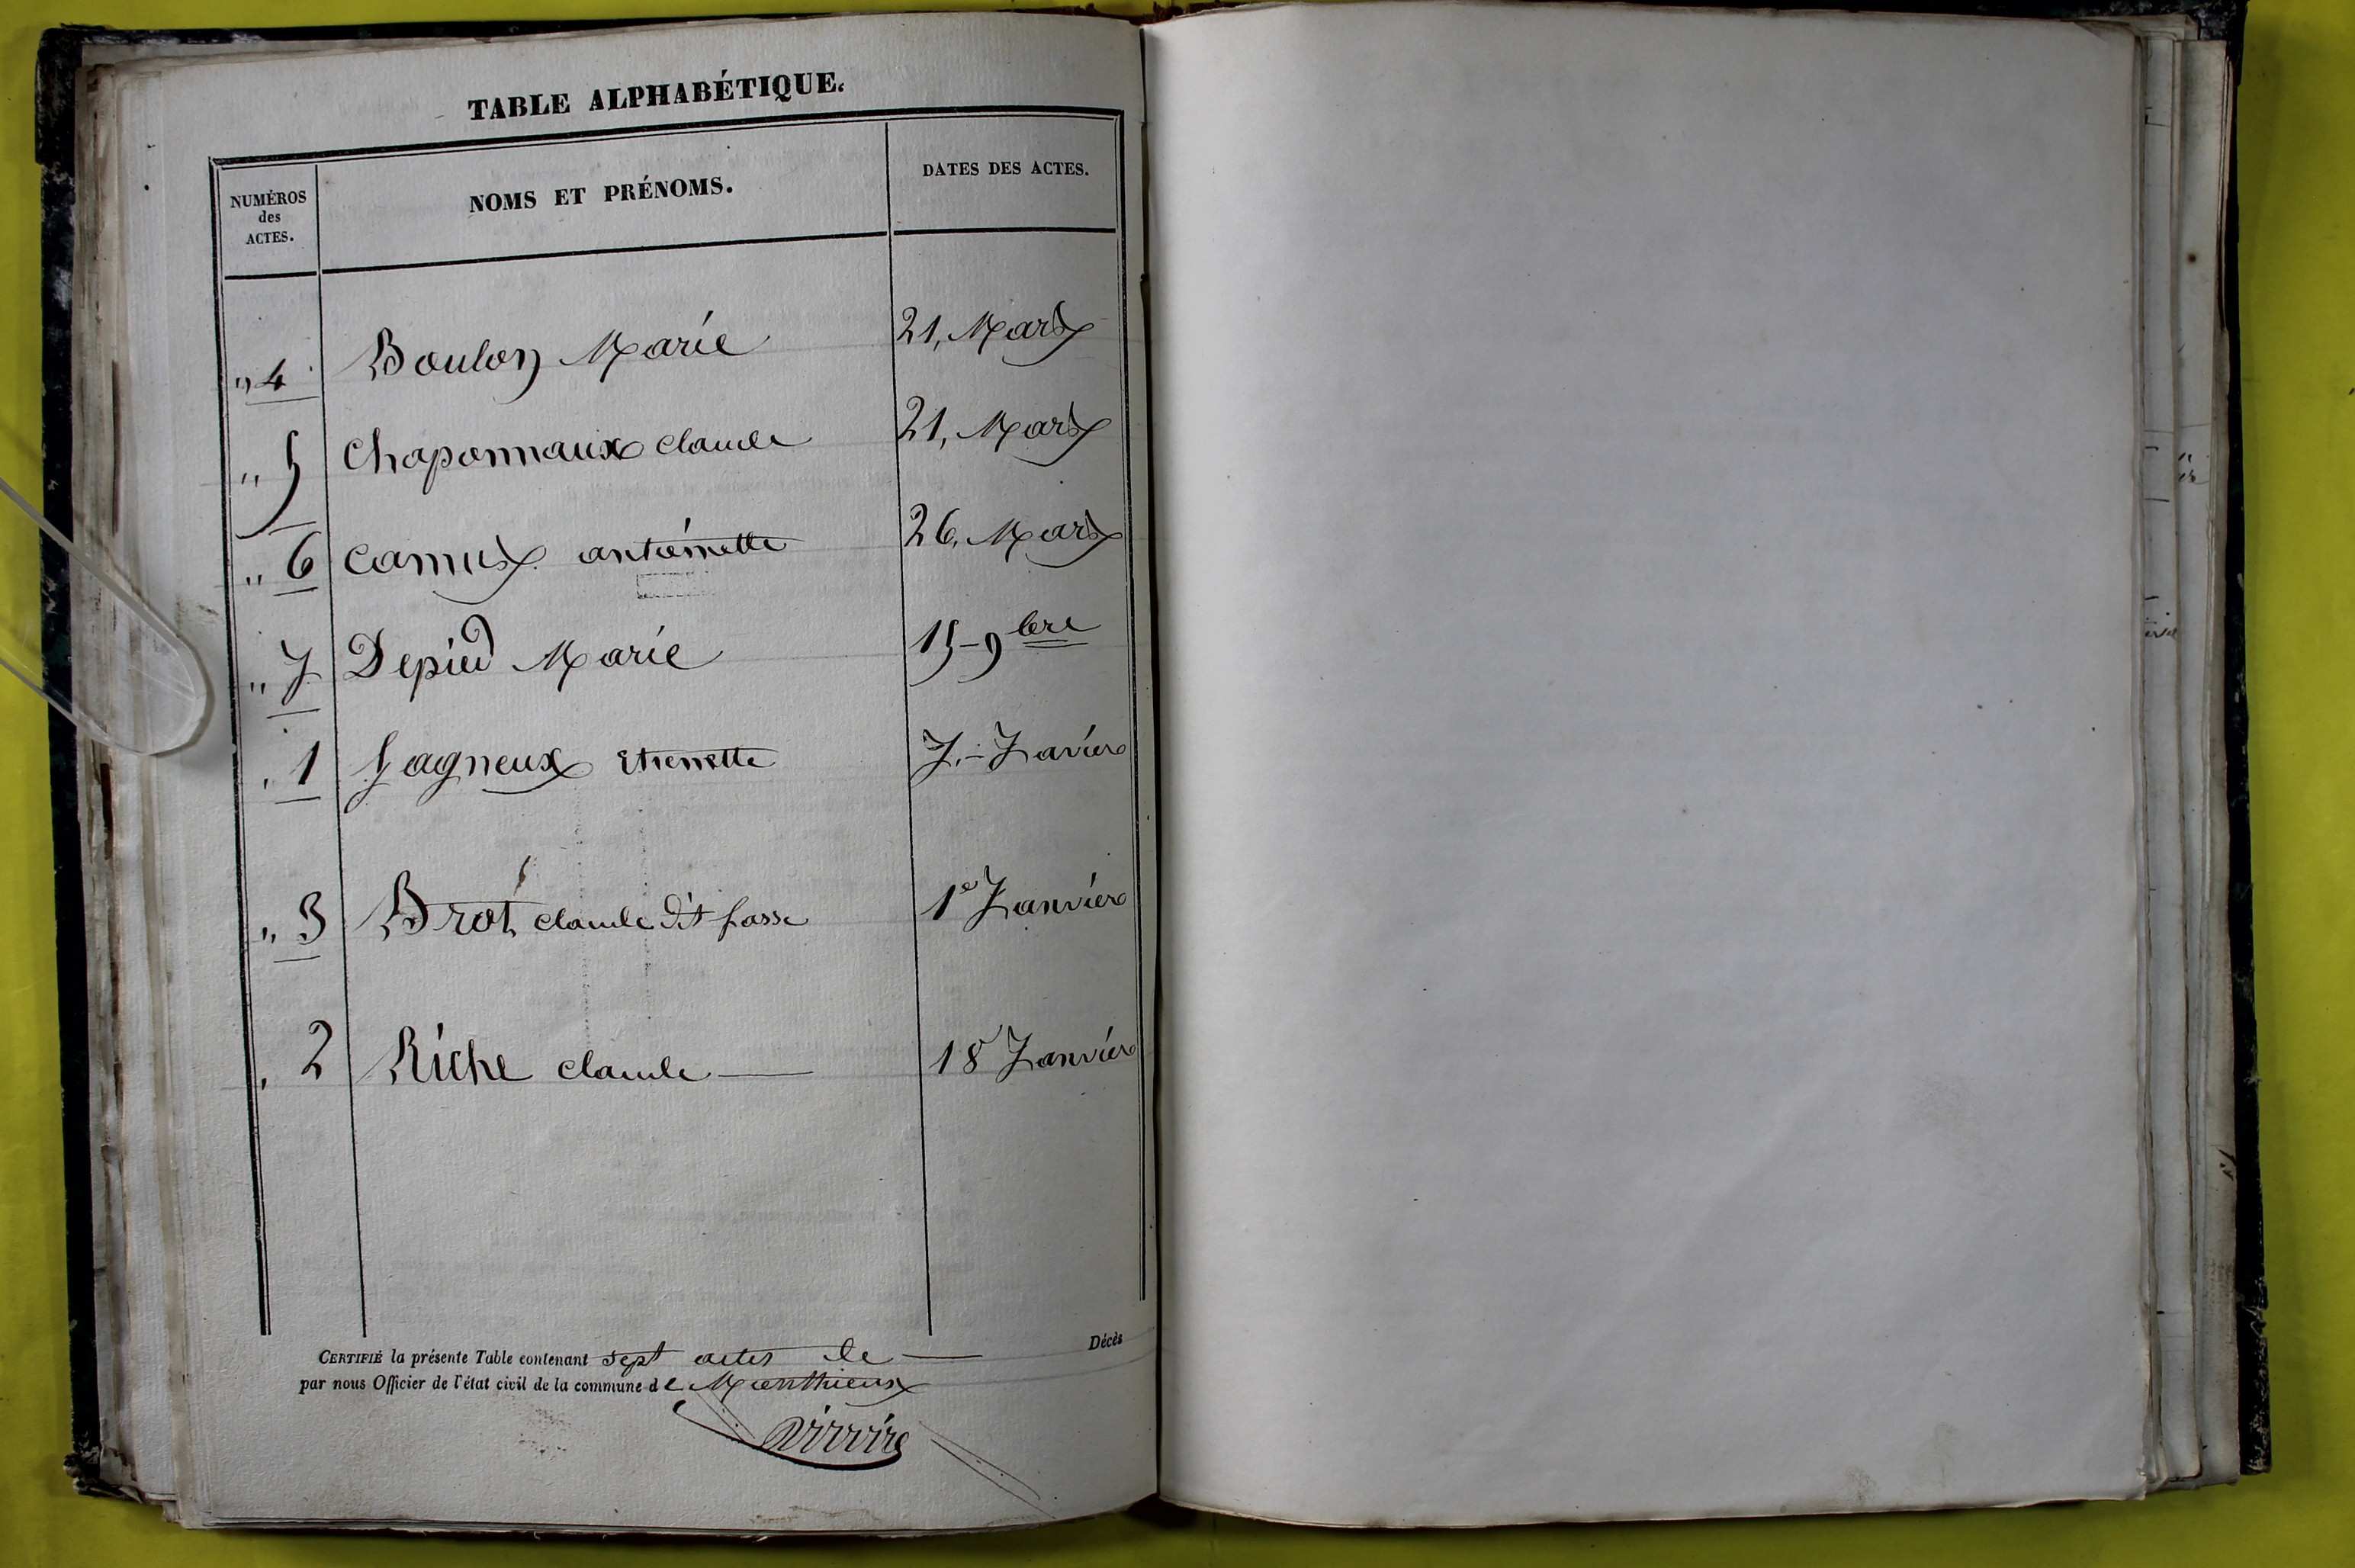 TABLE ALPHABÉTIQUE.
NUMÉROS
des
ACTES.
NOMS ET PRÉNOMS.
DATES DES ACTES.
" 4 Boulon Marie 21, Mars
" 5 Chaponnaux claude 21, Mars
" 6 Camus antoinette 26, Mars
" 7 Depied Marie 15-9bre
" 1 Gagneux Etiennette 7.- Javier
" 3 Brot claude dit 1e Janvier
" 2 Riche claude 18 Janvier
CERTIFIÉ la présente Table contenant sept actes de Décès
par nous Officier de l'état civil de la commune de Monthieux